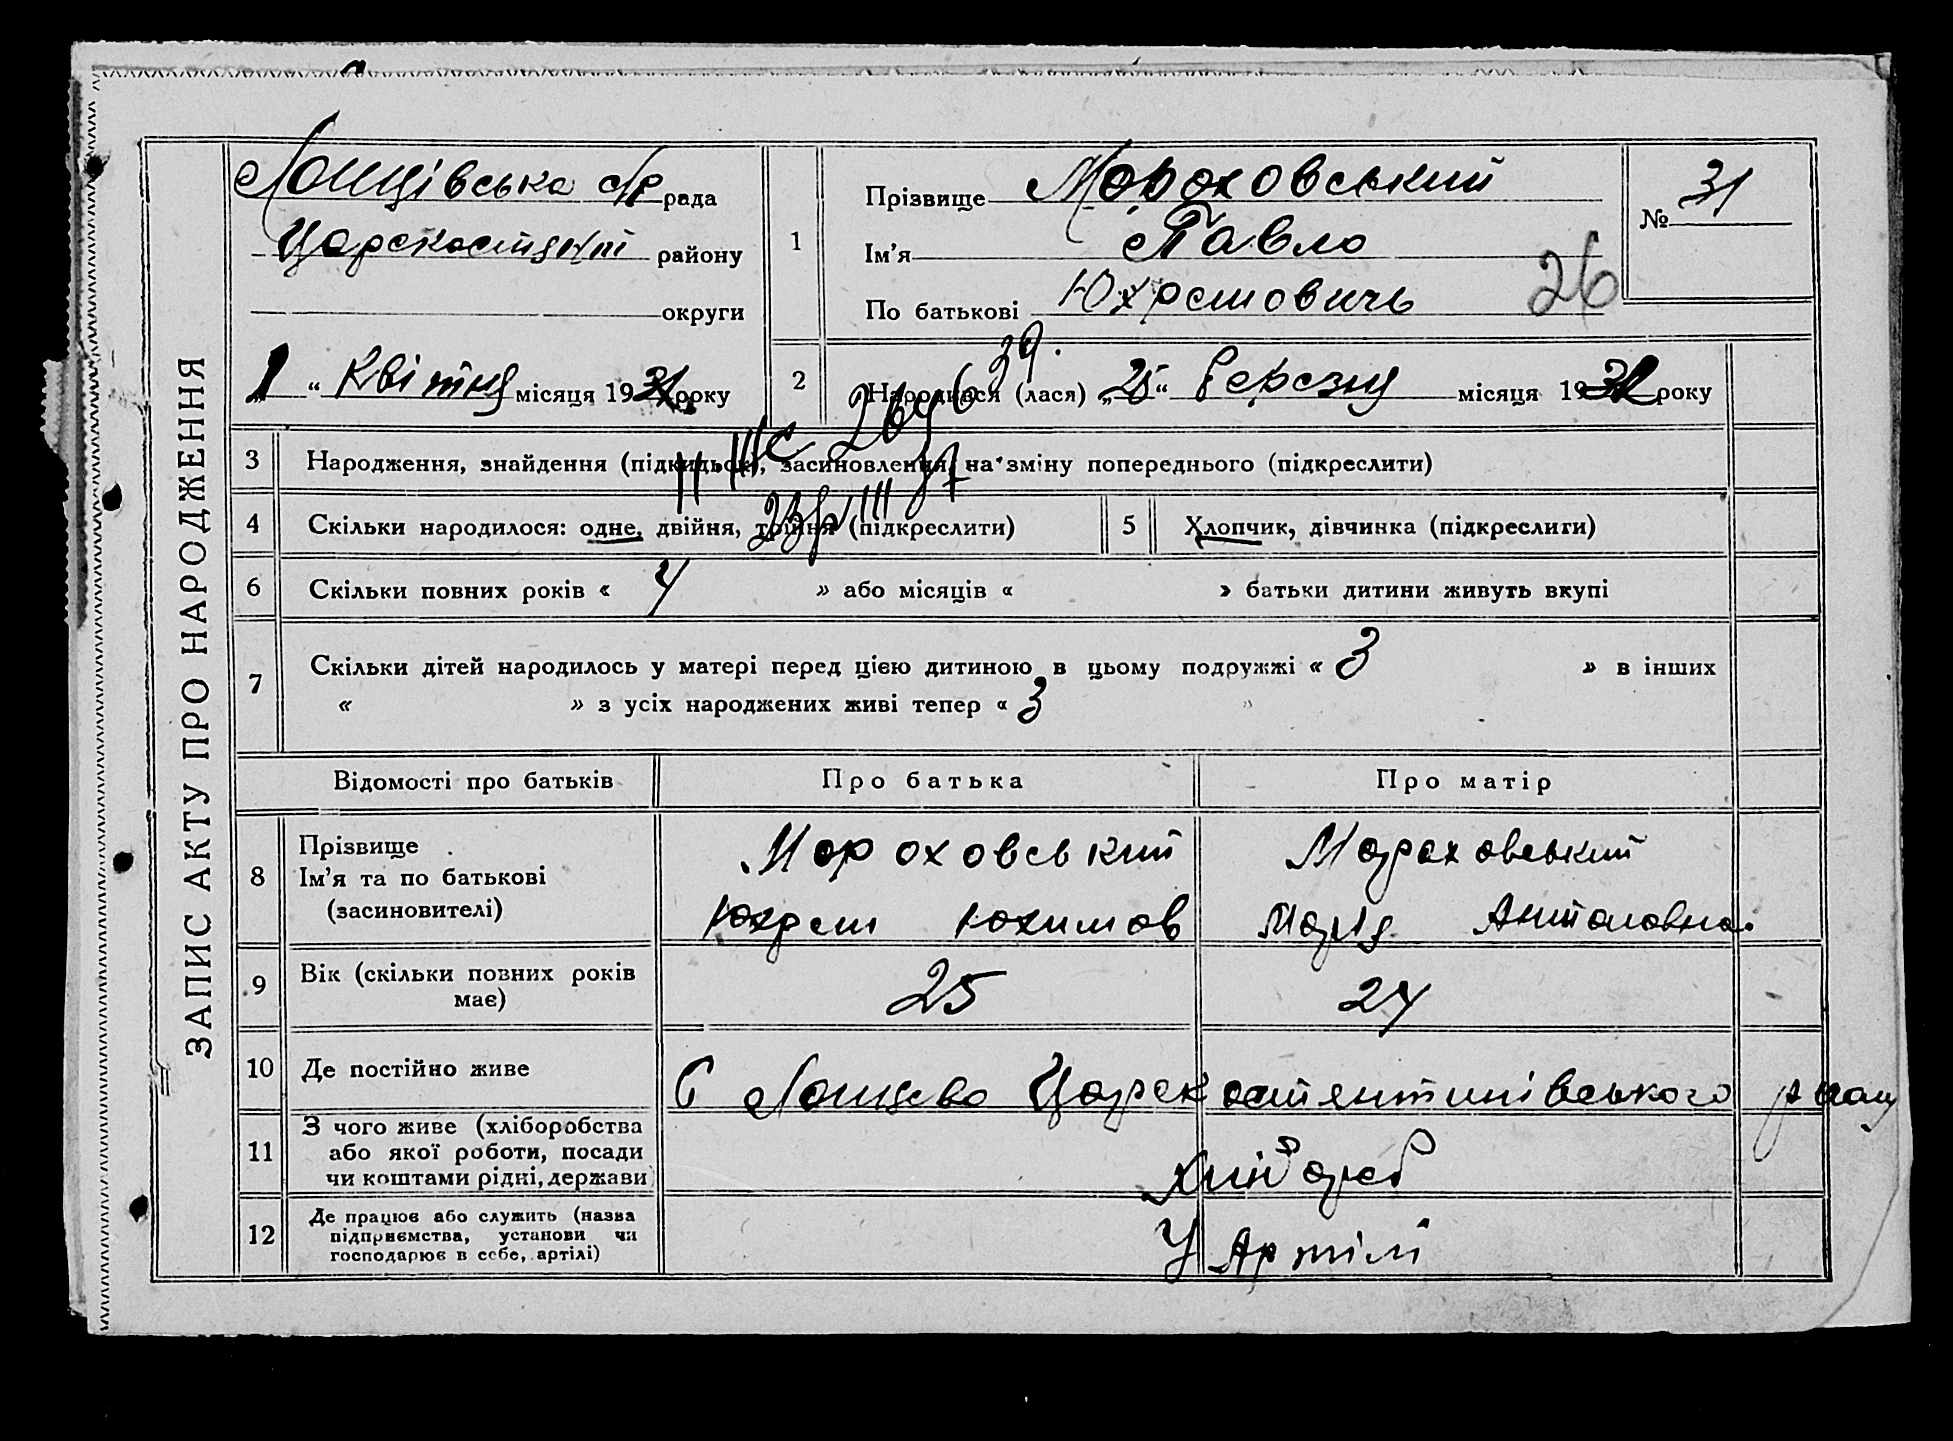 ЗАПИС АКТУ ПРО НАРОДЖЕННЯ
Лощівська с/р рада
району
округи
„1“ Квітня місяця 1931 року
1
Прізвище Мороховський
Ім’я Павло
По батькові Юхремовичь
№ 31
26
2
Народився (лася) „25“ березня місяця 1931 року
3 Народження, знайдення (підкидьок), засиновлення, на зміну попереднього (підкреслити)
4 Скільки народилося: одне, двійня, трійня (підкреслити)
5 Хлопчик, дівчинка (підкреслити)
6 Скільки повних років « 4 » або місяців « » батьки дитини живуть вкупі
7 Скільки дітей народилось у матері перед цією дитиною в цьому подружжі « 3 » в інших
« » з усіх народжених живі тепер « 3 »
Відомості про батьків Про батька Про матір
8 Прізвище
Ім’я та по батькові
(засиновителі)
Мороховський
Юхрем Юхимов
Мороховський
Марія Антоновна
9 Вік (скільки повних років
має)
25 24
10 Де постійно живе
С Лощево
11 З чого живе (хліборобства
або якої роботи, посади
чи коштами рідні, держави)
12 Де працює або служить (назва
підприємства, установи чи
господарює в себе, артілі)
У Артілі